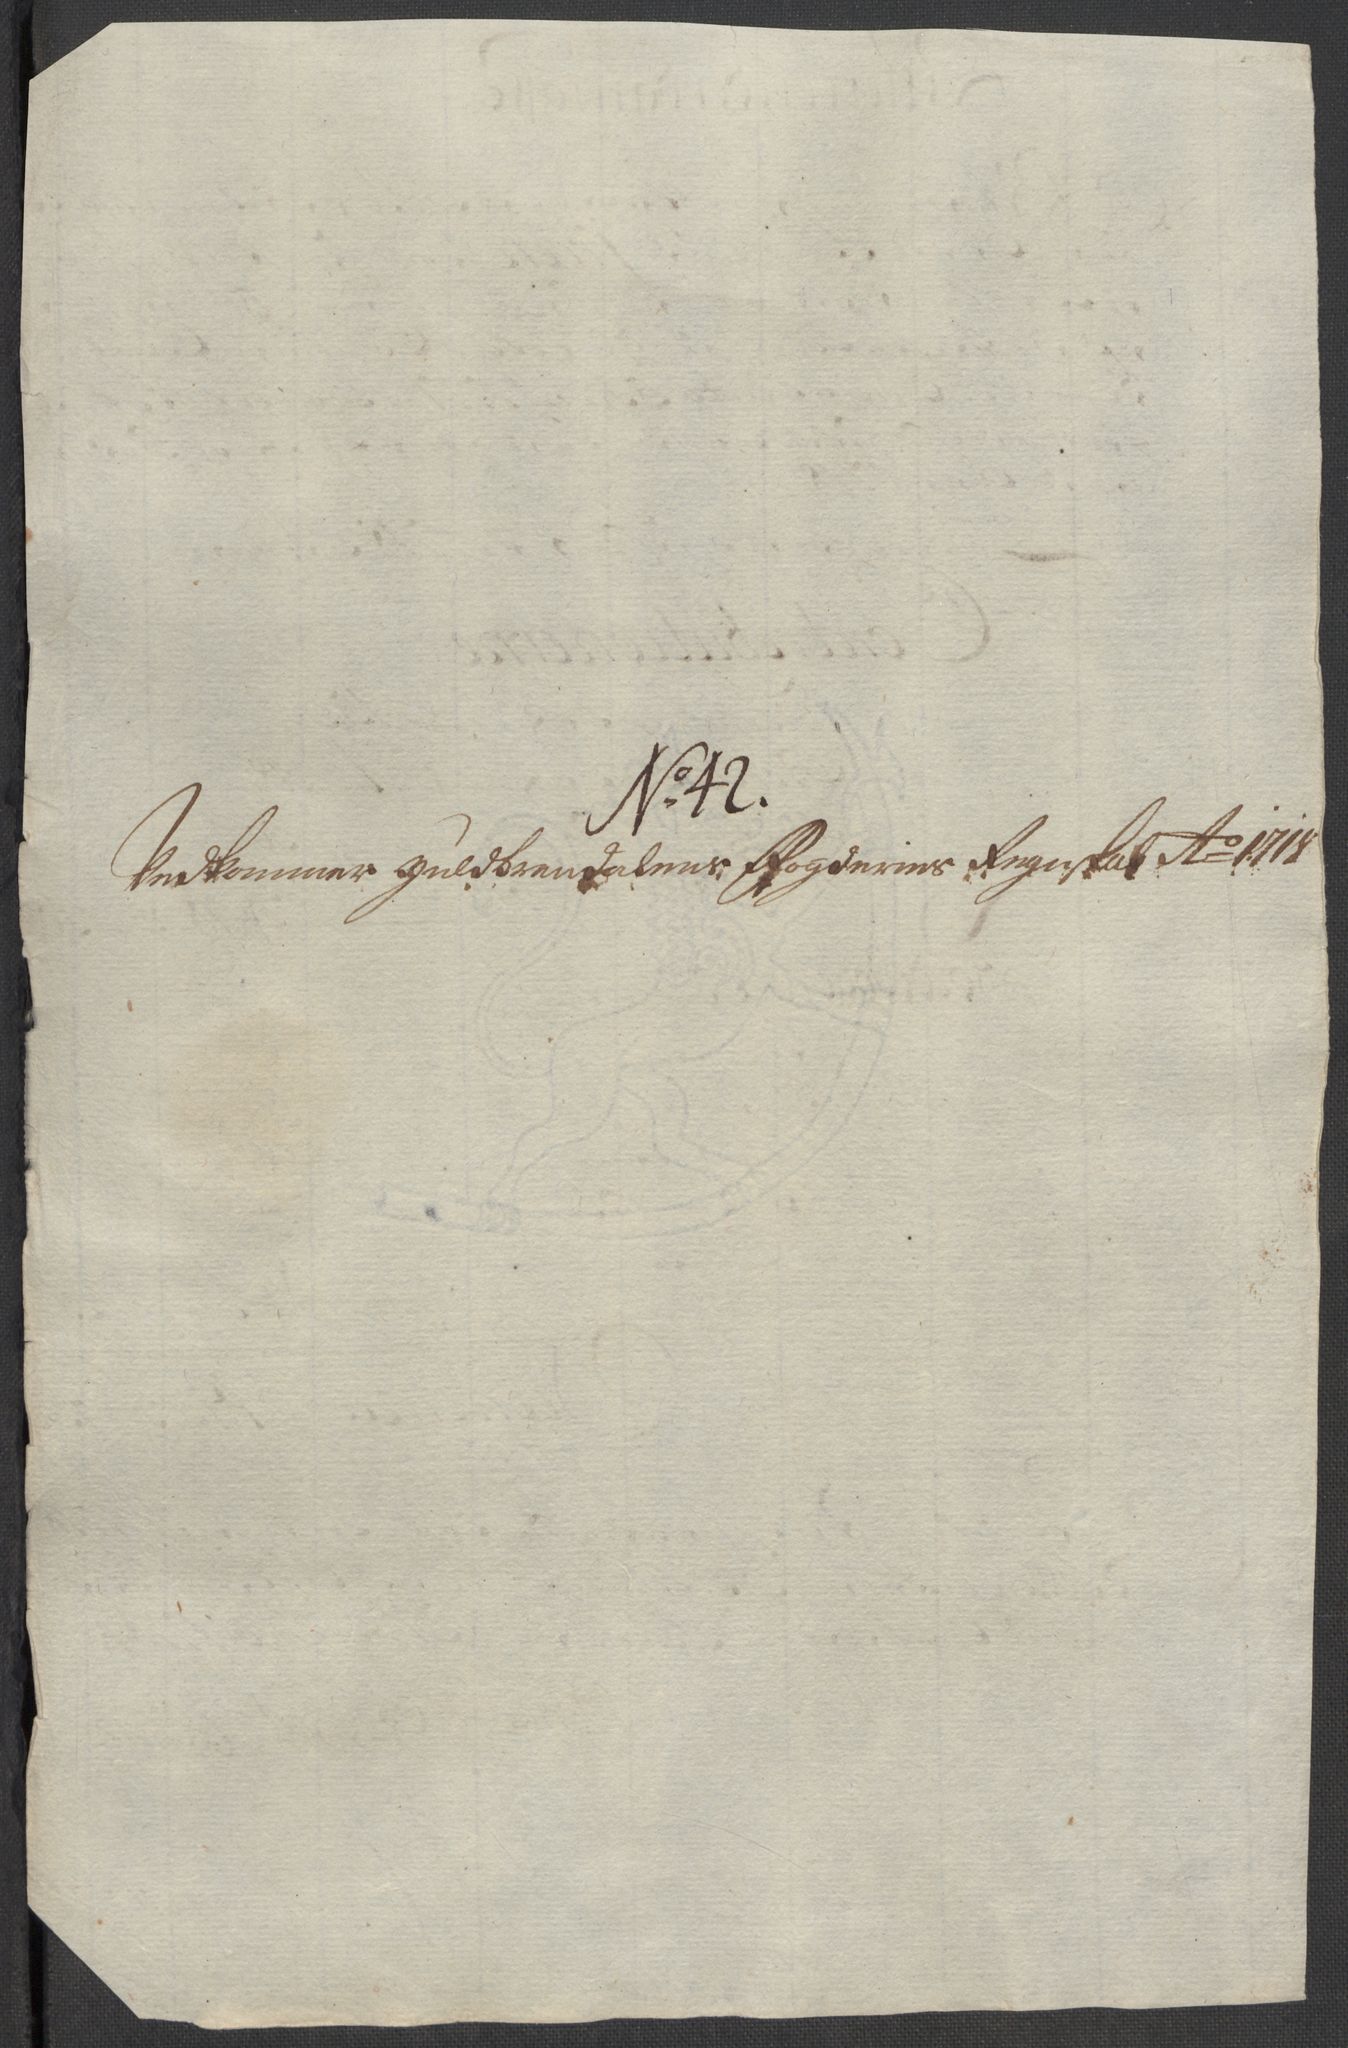 No 42.
Vedkommer Guldbrendalens Fogderies Regenskab Ao 1718